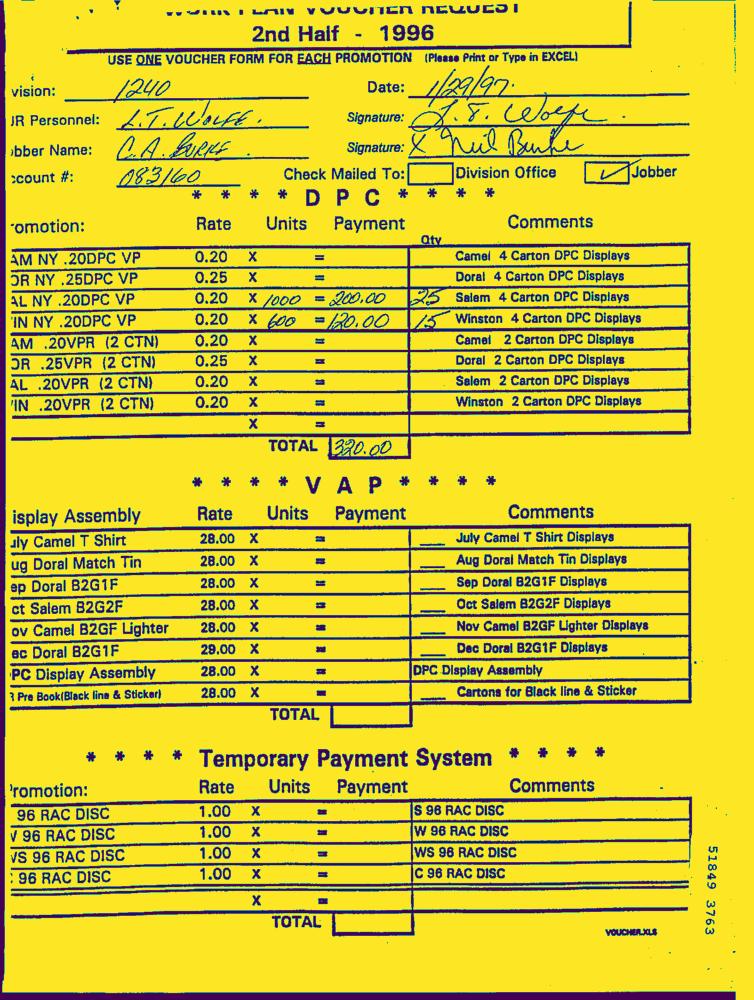 WORK PLAN VOUCHER REQUEST
2nd Half - 1996
USE ONE VOUCHER FORM FOR EACH PROMOTION (Please Print or Type in EXCEL)
vision: 1240 Date: 1/29/97
JR Personnel: L.T. WOLFE. Signature: J. T. Wolfe
bber Name: C.A. BURKE Signature: X Neil Burke
ccount #: 083160 Check Mailed To: Division Office ✓ Jobber
* * * * D P C * * * *
romotion: Rate Units Payment Comments
Qty
AM NY .20DPC VP 0.20 X = Camel 4 Carton DPC Displays
OR NY .25DPC VP 0.25 X = Doral 4 Carton DPC Displays
AL NY .20DPC VP 0.20 X 1000 = 200.00 25 Salem 4 Carton DPC Displays
IN NY .20DPC VP 0.20 X 600 = 120.00 15 Winston 4 Carton DPC Displays
AM .20VPR (2 CTN) 0.20 X = Camel 2 Carton DPC Displays
OR .25VPR (2 CTN) 0.25 X = Doral 2 Carton DPC Displays
AL .20VPR (2 CTN) 0.20 X = Salem 2 Carton DPC Displays
IN .20VPR (2 CTN) 0.20 X = Winston 2 Carton DPC Displays
X =
TOTAL 320.00
* * * * V A P * * * *
isplay Assembly Rate Units Payment Comments
uly Camel T Shirt 28.00 X = July Camel T Shirt Displays
ug Doral Match Tin 28.00 X = Aug Doral Match Tin Displays
ep Doral B2G1F 28.00 X = Sep Doral B2G1F Displays
ct Salem B2G2F 28.00 X = Oct Salem B2G2F Displays
ov Camel B2GF Lighter 28.00 X = Nov Camel B2GF Lighter Displays
ec Doral B2G1F 29.00 X = Dec Doral B2G1F Displays
PC Display Assembly 28.00 X = DPC Display Assembly
R Pre Book(Black line & Sticker) 28.00 X = Cartons for Black line & Sticker
TOTAL
* * * * Temporary Payment System * * * *
romotion: Rate Units Payment Comments
96 RAC DISC 1.00 X = S 96 RAC DISC
V 96 RAC DISC 1.00 X = W 96 RAC DISC
VS 96 RAC DISC 1.00 X = WS 96 RAC DISC
96 RAC DISC 1.00 X = C 96 RAC DISC
X =
TOTAL
VOUCHER.XLS
51849 3763